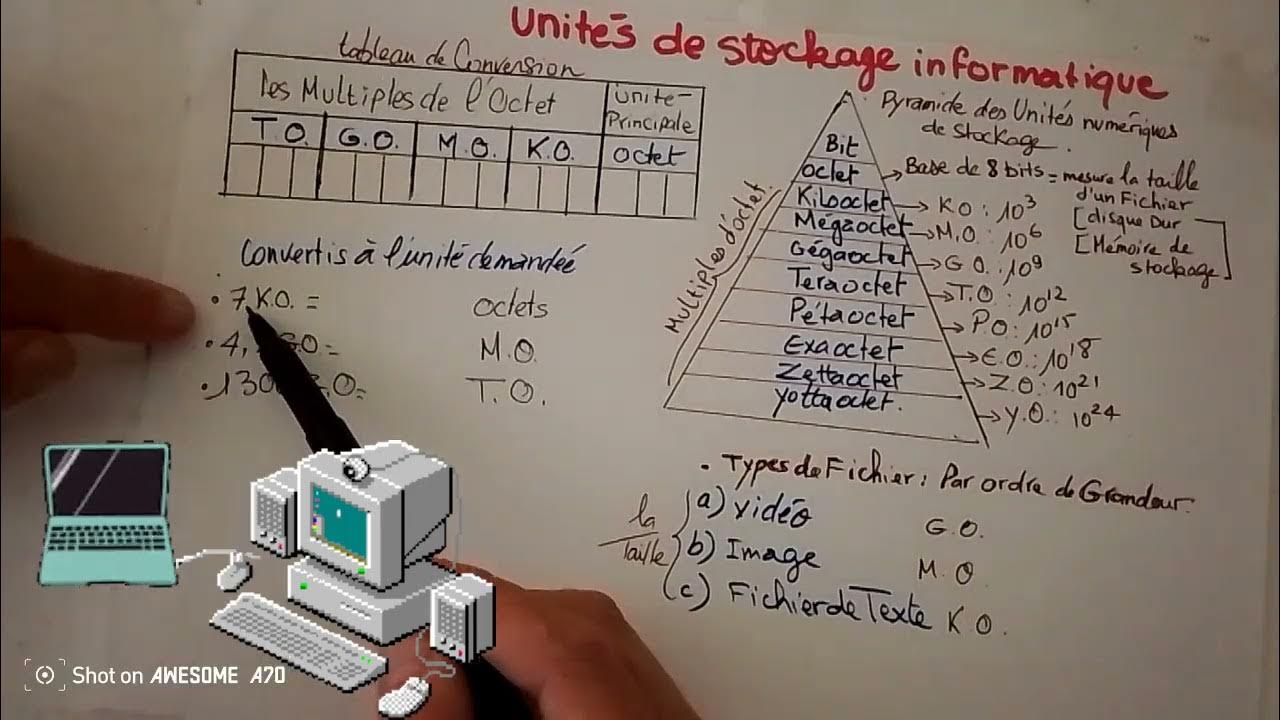 Unités de stockage informatique
tableau de Conversion
Les Multiples de l'Octet
Unité-Principale
T.O. G.O. M.O. K.O. octet
Convertis à l'unité demandée
• 7 K.O. = octets
• 4, GO = M.O.
• 130 .O = T.O.
Pyramide des Unités numériques
de stockage.
Bit
octet → Base de 8 bits = mesure la taille
d'un Fichier
[disque Dur
[Mémoire de
stockage]
Multiples d'octet
Kilooctet → KO : 10³
Mégaoctet → M.O : 10⁶
Gégaoctet → G O. : 10⁹
Teraoctet → T.O. : 10¹²
Pétaoctet → P.O : 10¹⁵
Exaoctet → E.O. : 10¹⁸
Zettaoctet → Z.O : 10²¹
Yottaoctet. → Y.O. : 10²⁴
• Types de Fichier : Par ordre de Grandeur.
la Taille
a) vidéo G.O.
b) Image M.O
(c) Fichier de Texte K O.
Shot on AWESOME A70